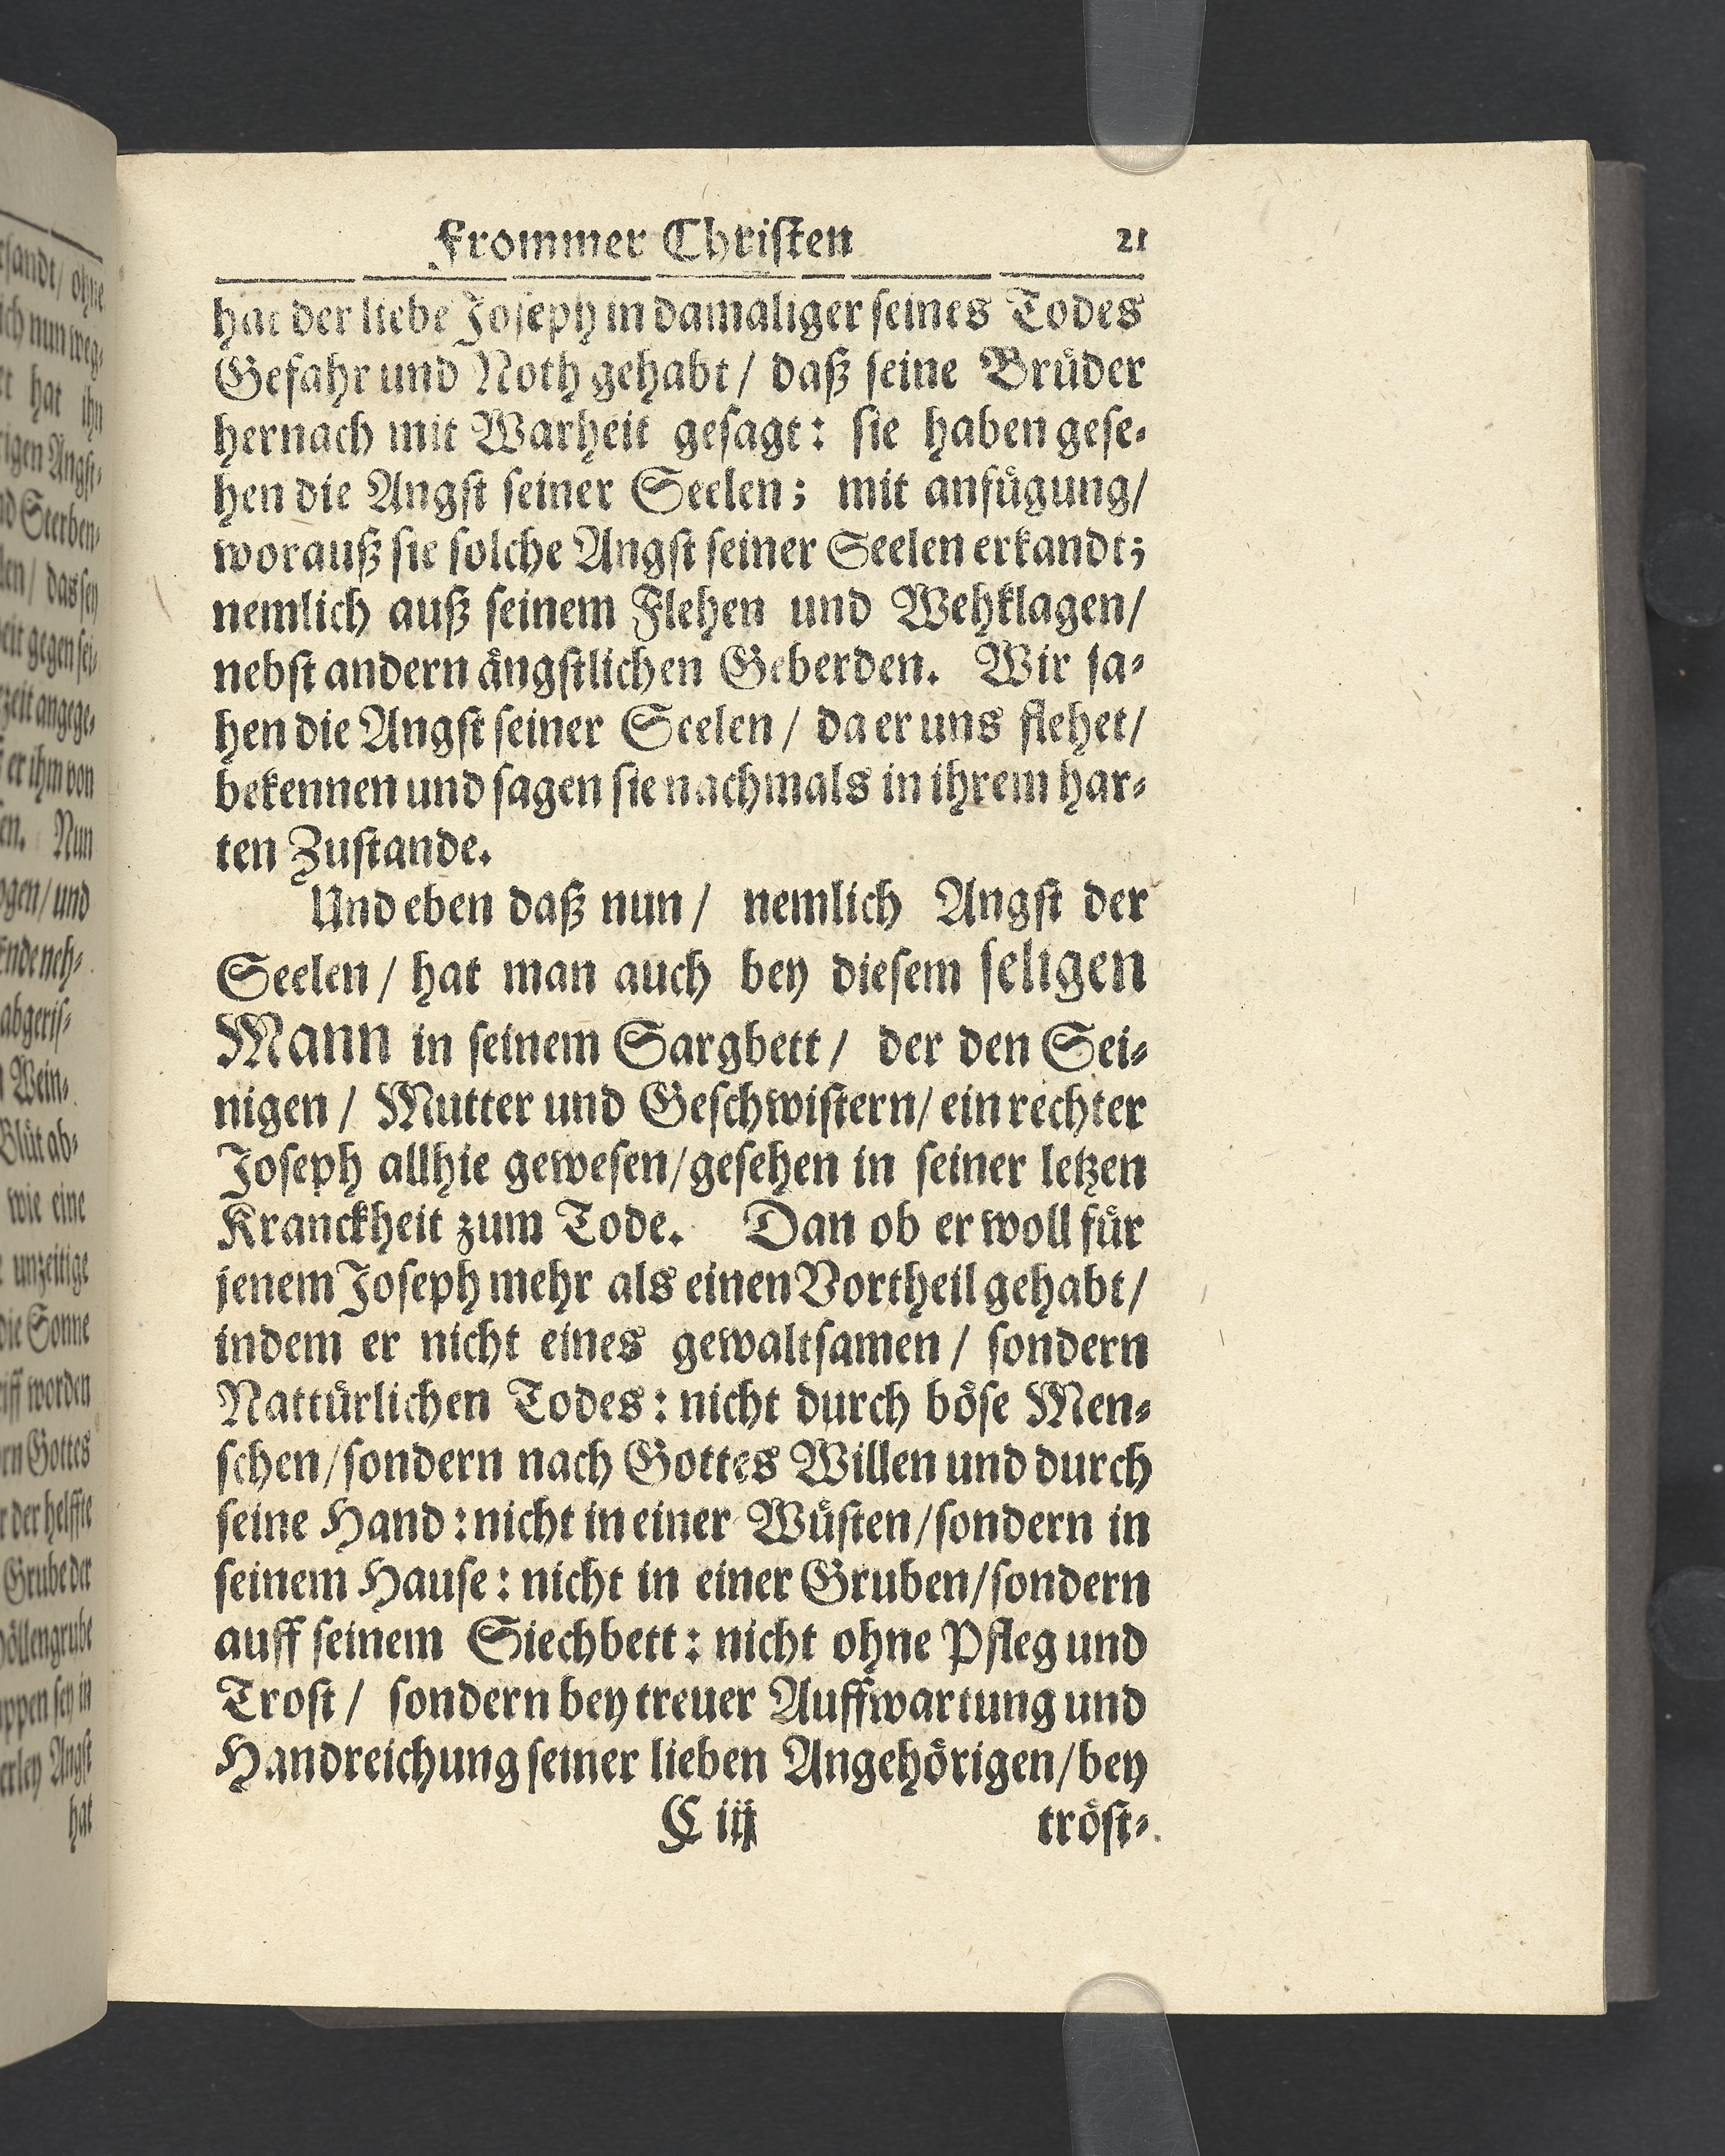 Frommer Christen 21
hat der liebe Joseph in damaliger seines Todes
Gefahr und Noth gehabt / daß seine Brüder
hernach mit Warheit gesagt: sie haben gese-
hen die Angst seiner Seelen; mit anfügung/
worauß sie solche Angst seiner Seelen erkandt;
nemlich auß seinem Flehen und Wehklagen/
nebst andern ängstlichen Geberden. Wir sa-
hen die Angst seiner Seelen / da er uns flehet/
bekennen und sagen sie nachmals in ihrem har-
ten Zustande.
Und eben daß nun / nemlich Angst der
Seelen / hat man auch bey diesem seligen
Mann in seinem Sargbett / der den Sei-
nigen / Mutter und Geschwistern/ ein rechter
Joseph allhie gewesen/gesehen in seiner letzen
Kranckheit zum Tode. Dan ob er woll für
jenem Joseph mehr als einen Vortheil gehabt/
indem er nicht eines gewaltsamen / sondern
Nattürlichen Todes: nicht durch böse Men-
schen/sondern nach Gottes Willen und durch
seine Hand: nicht in einer Wüsten/sondern in
seinem Hause: nicht in einer Gruben/sondern
auff seinem Siechbett: nicht ohne Pfleg und
Trost / sondern bey treuer Auffwartung und
Handreichung seiner lieben Angehörigen/bey
C iij tröst-
rsandt/ ohne
ich nun weg-
et hat ihn
rigen Angst-
nd Sterben-
len / das sey
eit gegen sei-
zeit angege-
er ihm von
en. Nun
ogen/und
Ende neh-
abgeris-
Wein-
Blüt ab-
wie eine
unzeitige
die Sonne
riff worden
rn Gottes
r der helffte
Grube der
höllengrube
ppen sey in
erley Angst
hat